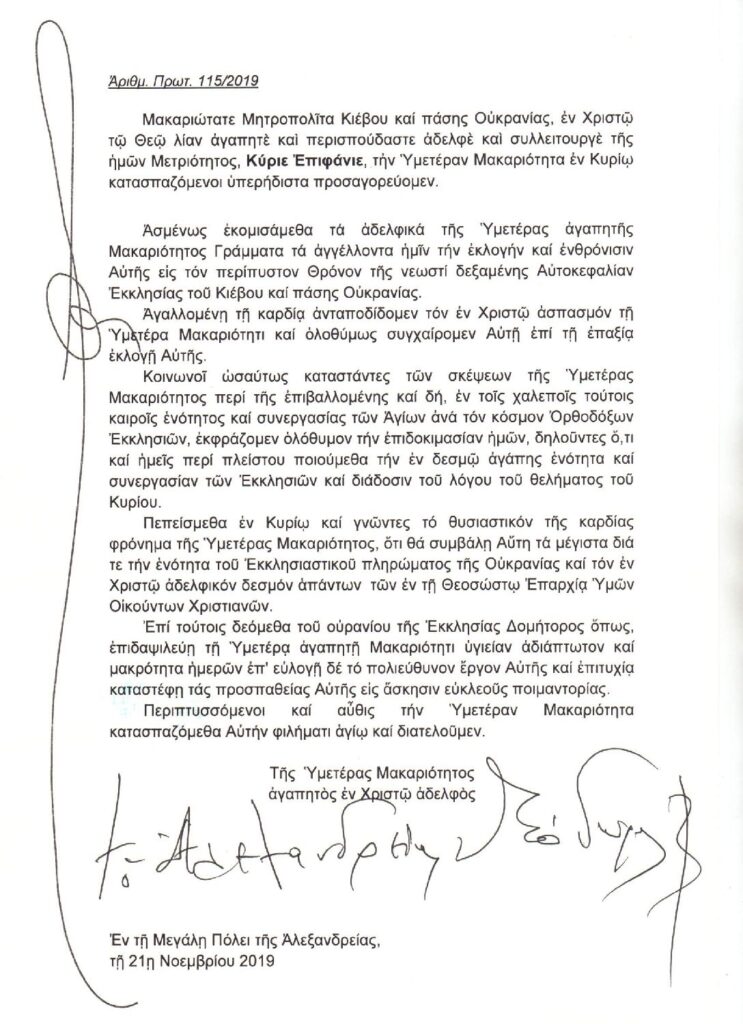 Ἀριθμ. Πρωτ. 115/2019
Μακαριώτατε Μητροπολῖτα Κιέβου καί πάσης Οὐκρανίας, ἐν Χριστῷ
τῷ Θεῷ λίαν ἀγαπητὲ καὶ περισπούδαστε ἀδελφὲ καὶ συλλειτουργὲ τῆς
ἡμῶν Μετριότητος, Κύριε Ἐπιφάνιε, τὴν Ὑμετέραν Μακαριότητα ἐν Κυρίῳ
κατασπαζόμενοι ὑπερήδιστα προσαγορεύομεν.
Ἀσμένως ἐκομισάμεθα τά ἀδελφικά τῆς Ὑμετέρας ἀγαπητῆς
Μακαριότητος Γράμματα τά ἀγγέλλοντα ἡμῖν τήν ἐκλογήν καί ἐνθρόνισιν
Αὐτῆς εἰς τόν περίπυστον Θρόνον τῆς νεωστί δεξαμένης Αὐτοκεφαλίαν
Ἐκκλησίας τοῦ Κιέβου καί πάσης Οὐκρανίας.
Ἀγαλλομένῃ τῇ καρδίᾳ ἀνταποδίδομεν τόν ἐν Χριστῷ ἀσπασμόν τῇ
Ὑμετέρᾳ Μακαριότητι καί ὁλοθύμως συγχαίρομεν Αὐτῇ ἐπί τῇ ἐπαξίᾳ
ἐκλογῇ Αὐτῆς.
Κοινωνοί ὡσαύτως καταστάντες τῶν σκέψεων τῆς Ὑμετέρας
Μακαριότητος περί τῆς ἐπιβαλλομένης καί δή, ἐν τοῖς χαλεποῖς τούτοις
καιροῖς ἑνότητος καί συνεργασίας τῶν Ἁγίων ἀνά τόν κόσμον Ὀρθοδόξων
Ἐκκλησιῶν, ἐκφράζομεν ὁλόθυμον τήν ἐπιδοκιμασίαν ἡμῶν, δηλοῦντες ὅ,τι
καί ἡμεῖς περί πλείστου ποιούμεθα τήν ἐν δεσμῷ ἀγάπης ἑνότητα καί
συνεργασίαν τῶν Ἐκκλησιῶν καί διάδοσιν τοῦ λόγου τοῦ θελήματος τοῦ
Κυρίου.
Πεπείσμεθα ἐν Κυρίῳ καί γνῶντες τό θυσιαστικόν τῆς καρδίας
φρόνημα τῆς Ὑμετέρας Μακαριότητος, ὅτι θά συμβάλῃ Αὕτη τά μέγιστα διά
τε τήν ἑνότητα τοῦ Ἐκκλησιαστικοῦ πληρώματος τῆς Οὐκρανίας καί τόν ἐν
Χριστῷ ἀδελφικόν δεσμόν ἁπάντων τῶν ἐν τῇ Θεοσώστῳ Ἐπαρχίᾳ Ὑμῶν
Οἰκούντων Χριστιανῶν.
Ἐπί τούτοις δεόμεθα τοῦ οὐρανίου τῆς Ἐκκλησίας Δομήτορος ὅπως,
ἐπιδαψιλεύῃ τῇ Ὑμετέρᾳ ἀγαπητῇ Μακαριότητι ὑγιείαν ἀδιάπτωτον καί
μακρότητα ἡμερῶν ἐπ' εὐλογῇ δέ τό πολιεύθυνον ἔργον Αὐτῆς καί ἐπιτυχίᾳ
καταστέφῃ τάς προσπαθείας Αὐτῆς εἰς ἄσκησιν εὐκλεοῦς ποιμαντορίας.
Περιπτυσσόμενοι καί αὖθις τήν Ὑμετέραν Μακαριότητα
κατασπαζόμεθα Αὐτήν φιλήματι ἁγίῳ καί διατελοῦμεν.
Τῆς Ὑμετέρας Μακαριότητος
ἀγαπητὸς ἐν Χριστῷ ἀδελφὸς
Ἐν τῇ Μεγάλῃ Πόλει τῆς Ἀλεξανδρείας,
τῇ 21ῃ Νοεμβρίου 2019